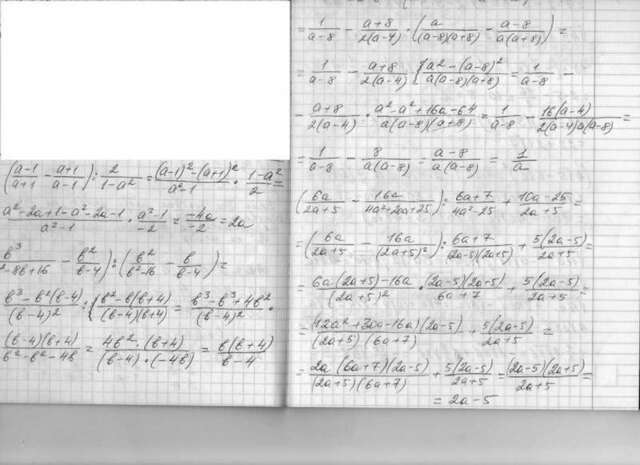 (a-1/a+1 - a+1/a-1) : 2/1-a² = (a-1)²-(a+1)²/a²-1 · 1-a²/2 =
a²-2a+1-a²-2a-1/a²-1 · a²-1/-2 = -4a/-2 = 2a
(в³/в²-8в+16 - в²/в-4) : (в²/в²-16 - в/в-4) =
в³-в²(в-4)/(в-4)² : (в²-в(в+4)/(в-4)(в+4) = в³-в³+4в²/(в-4)² ·
(в-4)(в+4)/в²-в²-4в = 4в²·(в+4)/(в-4)·(-4в) = в(в+4)/в-4
= 1/a-8 - a+8/2(a-4) · (a/(a-8)(a+8) - a-8/a(a+8)) =
= 1/a-8 - a+8/2(a-4) · (a²-(a-8)²/a(a-8)(a+8) = 1/a-8 -
- a+8/2(a-4) · a²-a²+16a-64/a(a-8)(a+8) = 1/a-8 - 16(a-4)/2(a-4)a(a-8) =
= 1/a-8 - 8/a(a-8) = a-8/a(a-8) = 1/a
(6a/2a+5 - 16a/4a²+20a+25) : 6a+7/4a²-25 + 10a-25/2a+5 =
= (6a/2a+5 - 16a/(2a+5)²) : 6a+7/(2a-5)(2a+5) + 5(2a-5)/2a+5 =
= 6a·(2a+5)-16a/(2a+5)² · (2a-5)(2a+5)/6a+7 + 5(2a-5)/2a+5 =
= (12a²+30a-16a)(2a-5)/(2a+5)(6a+7) + 5(2a-5)/2a+5 =
= 2a(6a+7)(2a-5)/(2a+5)(6a+7) + 5(2a-5)/2a+5 = (2a-5)(2a+5)/2a+5 =
= 2a-5